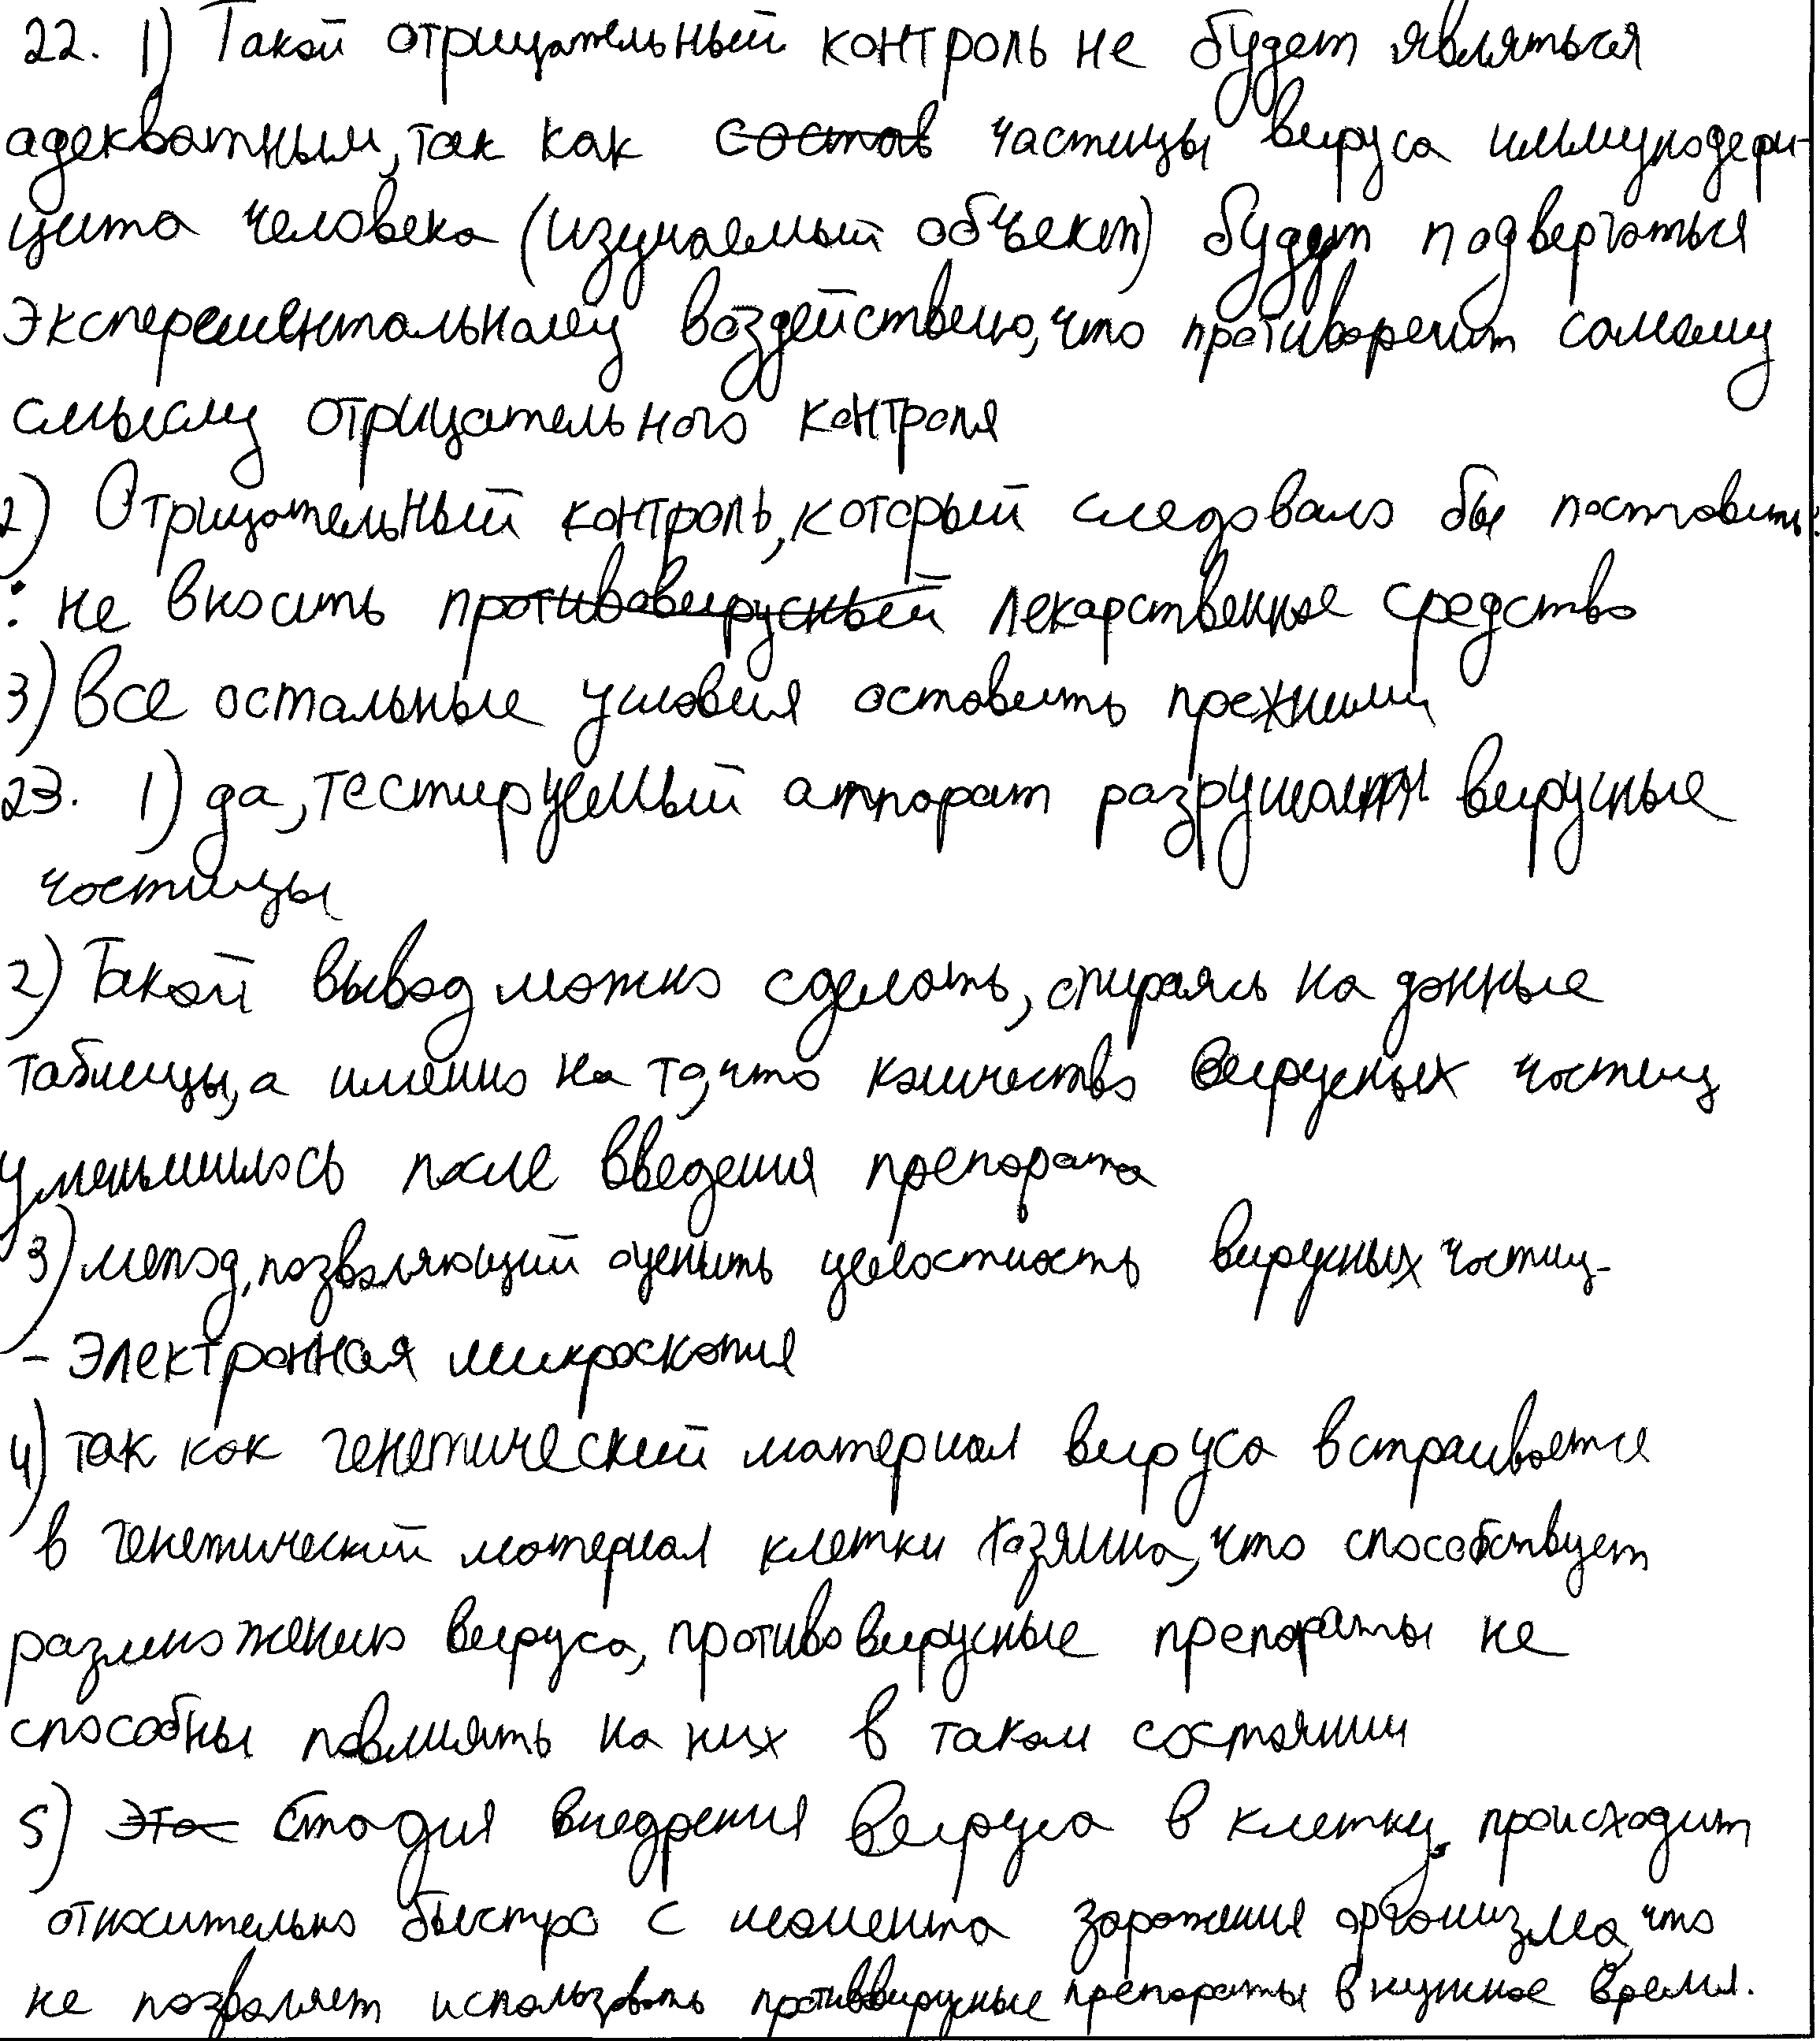 22. 1) Такой отрицательный контроль не будет являться
адекватным, так как состав частицы вируса иммунодефи-
цита человека (изучаемый объект) будут подвергаться
экспериментальному воздействию, что противоречит самому
смыслу отрицательного контроля
2) Отрицательный контроль, который следовало бы поставить:
: не вносить противовирусный лекарственное средство
3) все остальные условия оставить прежними
23. 1) да, тестируемый аппарат разрушает вирусные
частицы
2) Такой вывод можно сделать, опираясь на данные
таблицы, а именно на то, что количество вирусных частиц
уменьшилось после введения препарата
3) метод, позволяющий оценить целостность вирусных частиц -
- электронная микроскопия
4) так как генетический материал вируса встраивается
в генетический материал клетки хозяина, что способствует
размножению вируса, противовирусные препараты не
способны повлиять на них в таком состоянии
5) Это Стадия внедрения вируса в клетку происходит
относительно быстро с момента заражения организма, что
не позволяет использовать противовирусные препараты в нужное время.